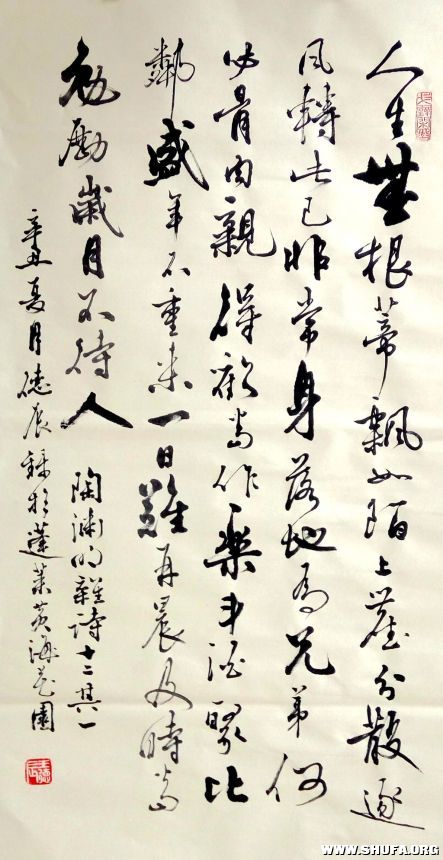 人生無根蒂飄如陌上塵分散逐
風轉此已非常身落地為兄弟何
必骨肉親得歡當作樂斗酒聚比
鄰盛年不重來一日難再晨及時當
勉勵歲月不待人
陶淵明雜詩十二其一
辛丑夏月德辰錄於蓬萊黃海花園
WWW.SHUFA.ORG